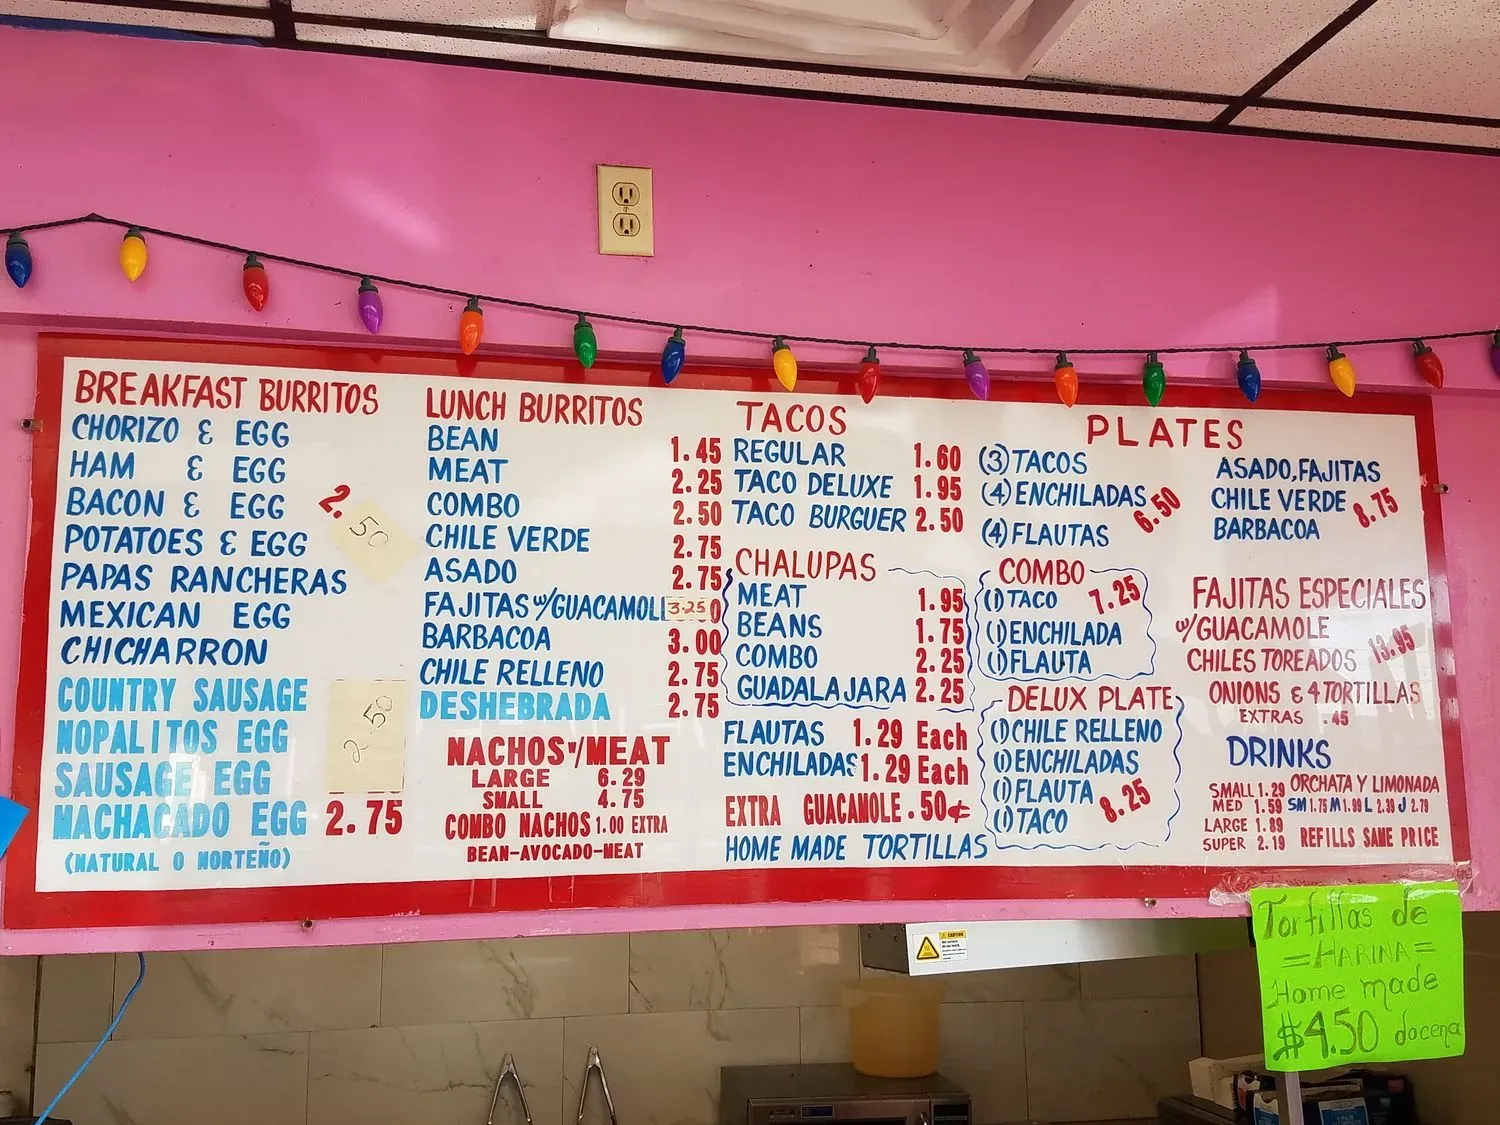 BREAKFAST BURRITOS
CHORIZO & EGG
HAM & EGG
BACON & EGG 2.50
POTATOES & EGG
PAPAS RANCHERAS
MEXICAN EGG
CHICHARRON
COUNTRY SAUSAGE
NOPALITOS EGG 2.50
SAUSAGE EGG
MACHACADO EGG 2.75
(NATURAL O NORTEÑO)
LUNCH BURRITOS
BEAN 1.45
MEAT 2.25
COMBO 2.50
CHILE VERDE 2.75
ASADO 2.75
FAJITAS W/GUACAMOLE 3.25
BARBACOA 3.00
CHILE RELLENO 2.75
DESHEBRADA 2.75
NACHOS W/MEAT
LARGE 6.29
SMALL 4.75
COMBO NACHOS 1.00 EXTRA
BEAN-AVOCADO-MEAT
TACOS
REGULAR 1.60
TACO DELUXE 1.95
TACO BURGUER 2.50
CHALUPAS
MEAT 1.95
BEANS 1.75
COMBO 2.25
GUADALAJARA 2.25
FLAUTAS 1.29 Each
ENCHILADAS 1.29 Each
EXTRA GUACAMOLE .50¢
HOME MADE TORTILLAS
PLATES
(3) TACOS
(4) ENCHILADAS 6.50
(4) FLAUTAS
COMBO 7.25
(1) TACO
(1) ENCHILADA
(1) FLAUTA
DELUX PLATE
(1) CHILE RELLENO
(1) ENCHILADAS
(1) FLAUTA 8.25
(1) TACO
ASADO, FAJITAS
CHILE VERDE 8.75
BARBACOA
FAJITAS ESPECIALES
W/GUACAMOLE
CHILES TOREADOS 13.95
ONIONS & 4 TORTILLAS
EXTRAS .45
DRINKS
SMALL 1.29
MED 1.59
LARGE 1.89
SUPER 2.19
ORCHATA Y LIMONADA
SM 1.75 M 1.99 L 2.39 J 2.79
REFILLS SAME PRICE
Tortillas de
=HARINA=
Home made
$4.50 docena
CAUTION